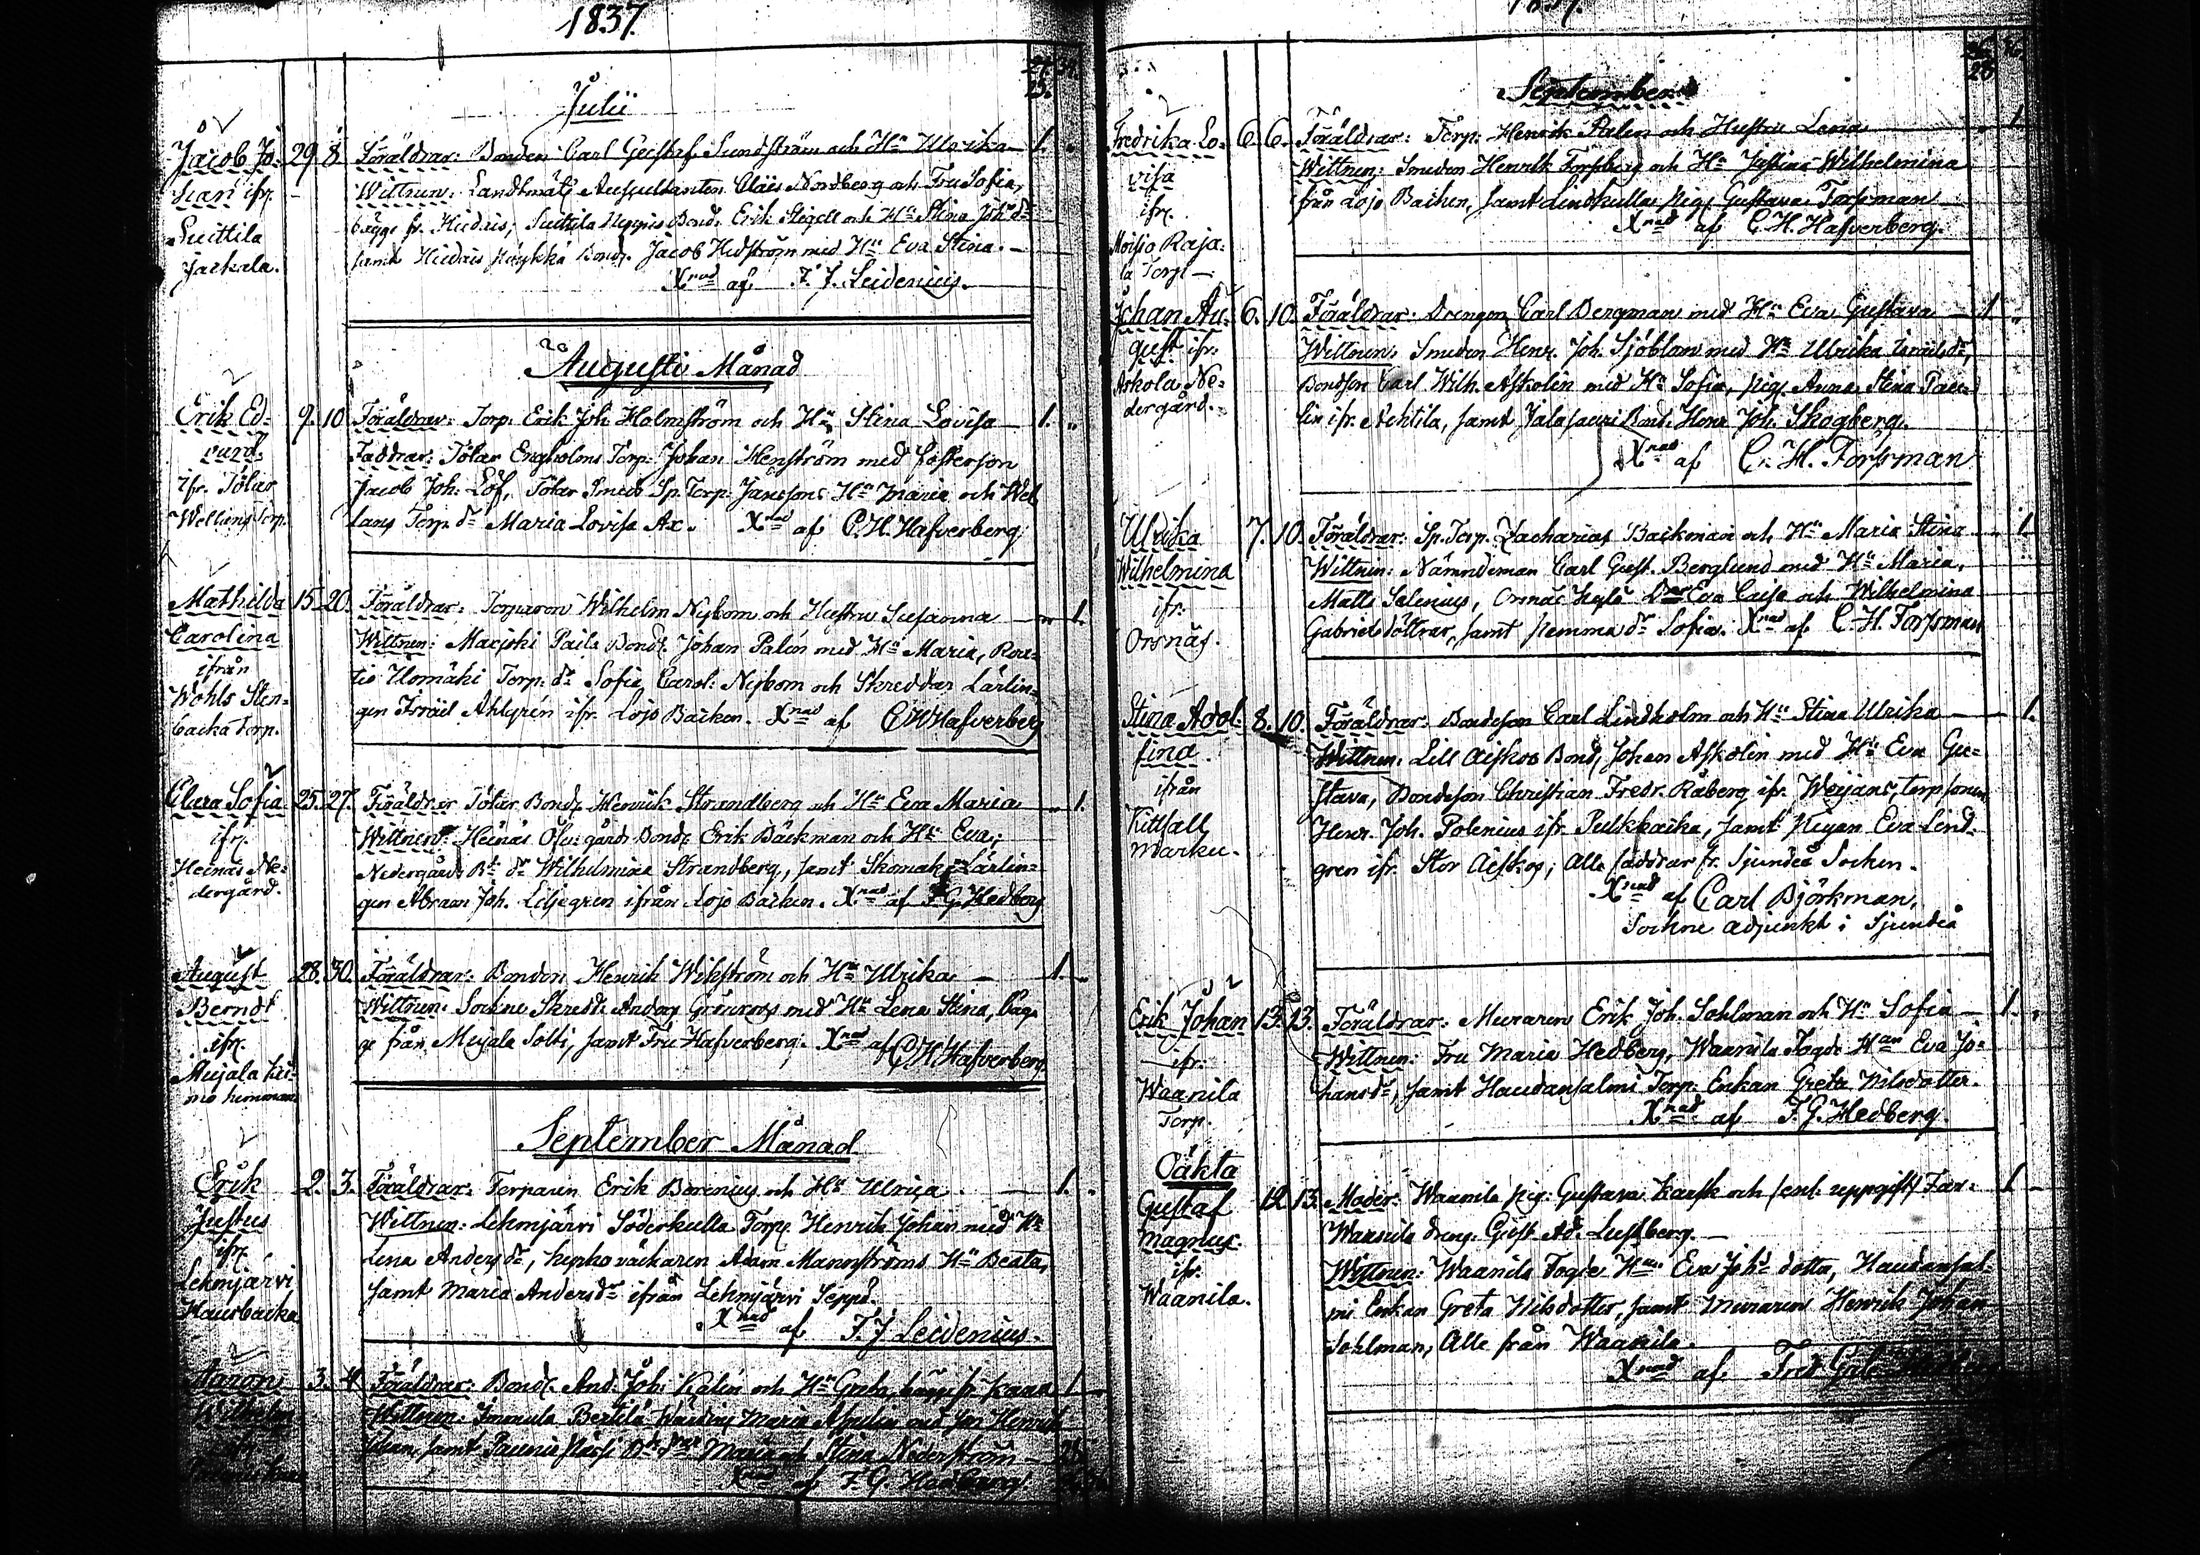 1837.
Julii
Jacob Jo-
han ifr.
Suittila
Jackala.
29. 8.
Föräldrar: Bonden Carl Gustaf Sundström och Hu Ulrika — 1.
Wittnen: Landtmät. Auscultanten Claës Nordberg och Fru Sofia,
bägge fr. Hiidais, Suittila Neppis Bond. Erik Stigell och Hu Stina Joh.dr
samt Hiidais Pöykkä Bond. Jacob Hedström med Hu Eva Stina. —
Xnad af F. J. Leidenius.
Augusti Månad
Erik Ed-
vard.
ifr. Tötar
Wellings Torp.
9. 10.
Föräldrar: Torp. Erik Joh. Holmström och Hu Stina Lovisa — 1.
Faddrar: Tötar Engholms Torp. Johan Henström med fosterson
Jacob Joh. Löf, Tötar Smeds Sp. Torp. Janssons Hu Maria och Wel
langs Torp. dr Maria Lovisa Ax. Xnad af C. H. Hafverberg
Mathilda
Carolina
ifrån
Wohls Sten-
backa Torp.
15. 20.
Föräldrar: Torparen Wilhelm Nybom och Hustru Susanna — 1.
Wittnen: Maciski Pails Bond. Johan Palén med Hu Maria, Rou-
tio Uomäki Torp. dr Sofia Carol. Nybom och Skreddar Lärlin-
gen Israël Ahlgrén ifr. Lojo Backen. Xnad af C H Hafverberg
Clara Sofia
ifr.
Heinäs Ne-
dergård.
25. 27.
Föräldrar Tötar Bond. Henrik Strandberg och Hu Eva Maria — 1.
Wittnen: Heinäs Öfvergårds Bond. Erik Bäckman och Hu Eva;
Nedergårds Bd dr Wilhelmina Strandberg, samt Skomak. Lärlin-
gen Abram Joh. Liljegren ifrån Lojo Backen. Xnad af F. G. Hedberg
August
Berndt
ifr.
Mujala
28. 30.
Föräldrar: Bonden Henrik Wikström och Hu Ulrika — 1.
Wittnen: Sockne Skredd. Anders Grönroos med Hu Lena Stina, bäg-
ge från Mujala Solti, samt Fru Hafverberg. Xnad af C H Hafverberg
September Månad
Erik
Justus
ifr.
Lehmjärvi
Haursbacka
2. 3.
Föräldrar: Torparen Erik Borenius och Hu Ulrica. — 1.
Wittnen: Lehmjärvi Söderkulla Torp. Henrik Johan med Hu
Lena Anders dr, kyrko väckaren Adam Mannströms Hu Beata,
samt Maria Anders dr ifrån Lehmjärvi Seppä.
Xnad af F. J Leidenius.
Aaron
Wilhelm
3. 4.
Föräldrar: Bond. And. Joh. Kalén och Hu Greta 1
Wittnen: Immula Bertilä Maria med son Henrik
Johan, samt Maria och Stina Nederström —
Xnad af F. G. Hedberg.
1837.
September
Fredrika Lo-
visa
ifr.
Moisio Raja-
la Torp —
6. 6.
Föräldrar: Torp. Henrik Palen och Hustru Lena — 1
Wittnen: Smeden Henrik Forsberg och Hu Justina Wilhelmina
från Lojo Backen, samt Lindkulla Pig. Gustava Forsman
Xnad af C. H. Hafverberg.
Johan Au-
gust ifr.
Askola Ne-
dergård.
6. 10.
Föräldrar: Drengen Carl Bergman med Hu Eva Gustava — 1
Wittnen: Smeden Henr. Joh. Sjöblom med Hu Ulrika Israëlsdr,
Bondson Carl Wilh. Askolin med Hu Sofia, Pig. Anna Stina
lin ifr. Nehtila, samt Jalassaari Bond. Henr. Joh. Skogberg.
Xnad af C. H. Forsman
Ulrika
Wilhelmina
ifr.
Orsnäs.
7. 10.
Föräldrar: Sp. Torp. Zacharias Backman och Hu Maria Stina — 1.
Wittnen: Nämndeman Carl Gust. Berglund med Hu Maria,
Matts Salenius, Ormnäs Eva Caisa och Wilhelmina
Gabriels döttrar, samt Hemma dr Sofia. Xnad af C. H. Forsman
Stina Adol-
fina.
ifrån
Kittfall
Marku.
8. 10.
Föräldrar: Bondeson Carl Lindholm och Hu Stina Ulrika — 1.
Wittnen: Lill Aiskos Bond. Johan Askolin med Hu Eva Gu-
stava, Bondeson Christian Fredr. Råberg ifr. Weijans, torpsonen
Henr. Joh. Polenius ifr. Pulkkacka, samt Pigan Eva Lind-
gren ifr. Stor Aiskos; Alla faddrar fr. Sjundeå Socken.
Xnad af Carl Björkman,
Sockne adjunkt i Sjundeå
Erik Johan
ifr.
Waanila
Torp.
13. 13.
Föräldrar: Muraren Erik Joh. Sohlman och Hu Sofia — 1.
Wittnen: Fru Maria Hedberg, Waanila Fogde Hun Eva Jo-
hansdr, samt Haudansalmi Torp. Enkan Greta Nilsdotter.
Xnad af F. G. Hedberg.
Oäkta
Gustaf
Magnus
ifr.
Waanila.
12. 13.
Moder: Waanila Pig. Gustava Karsk och (enl. uppgift) Far: 1
Waanila dreng. Gust. Ad. Lustberg. —
Wittnen: Waanila Fogde Hun Eva Johs dotter, Haudansal-
mi Enkan Greta Nilsdotter, samt Muraren Henrik Johan
Sohlman, Alla från Waanila.
Xnad af